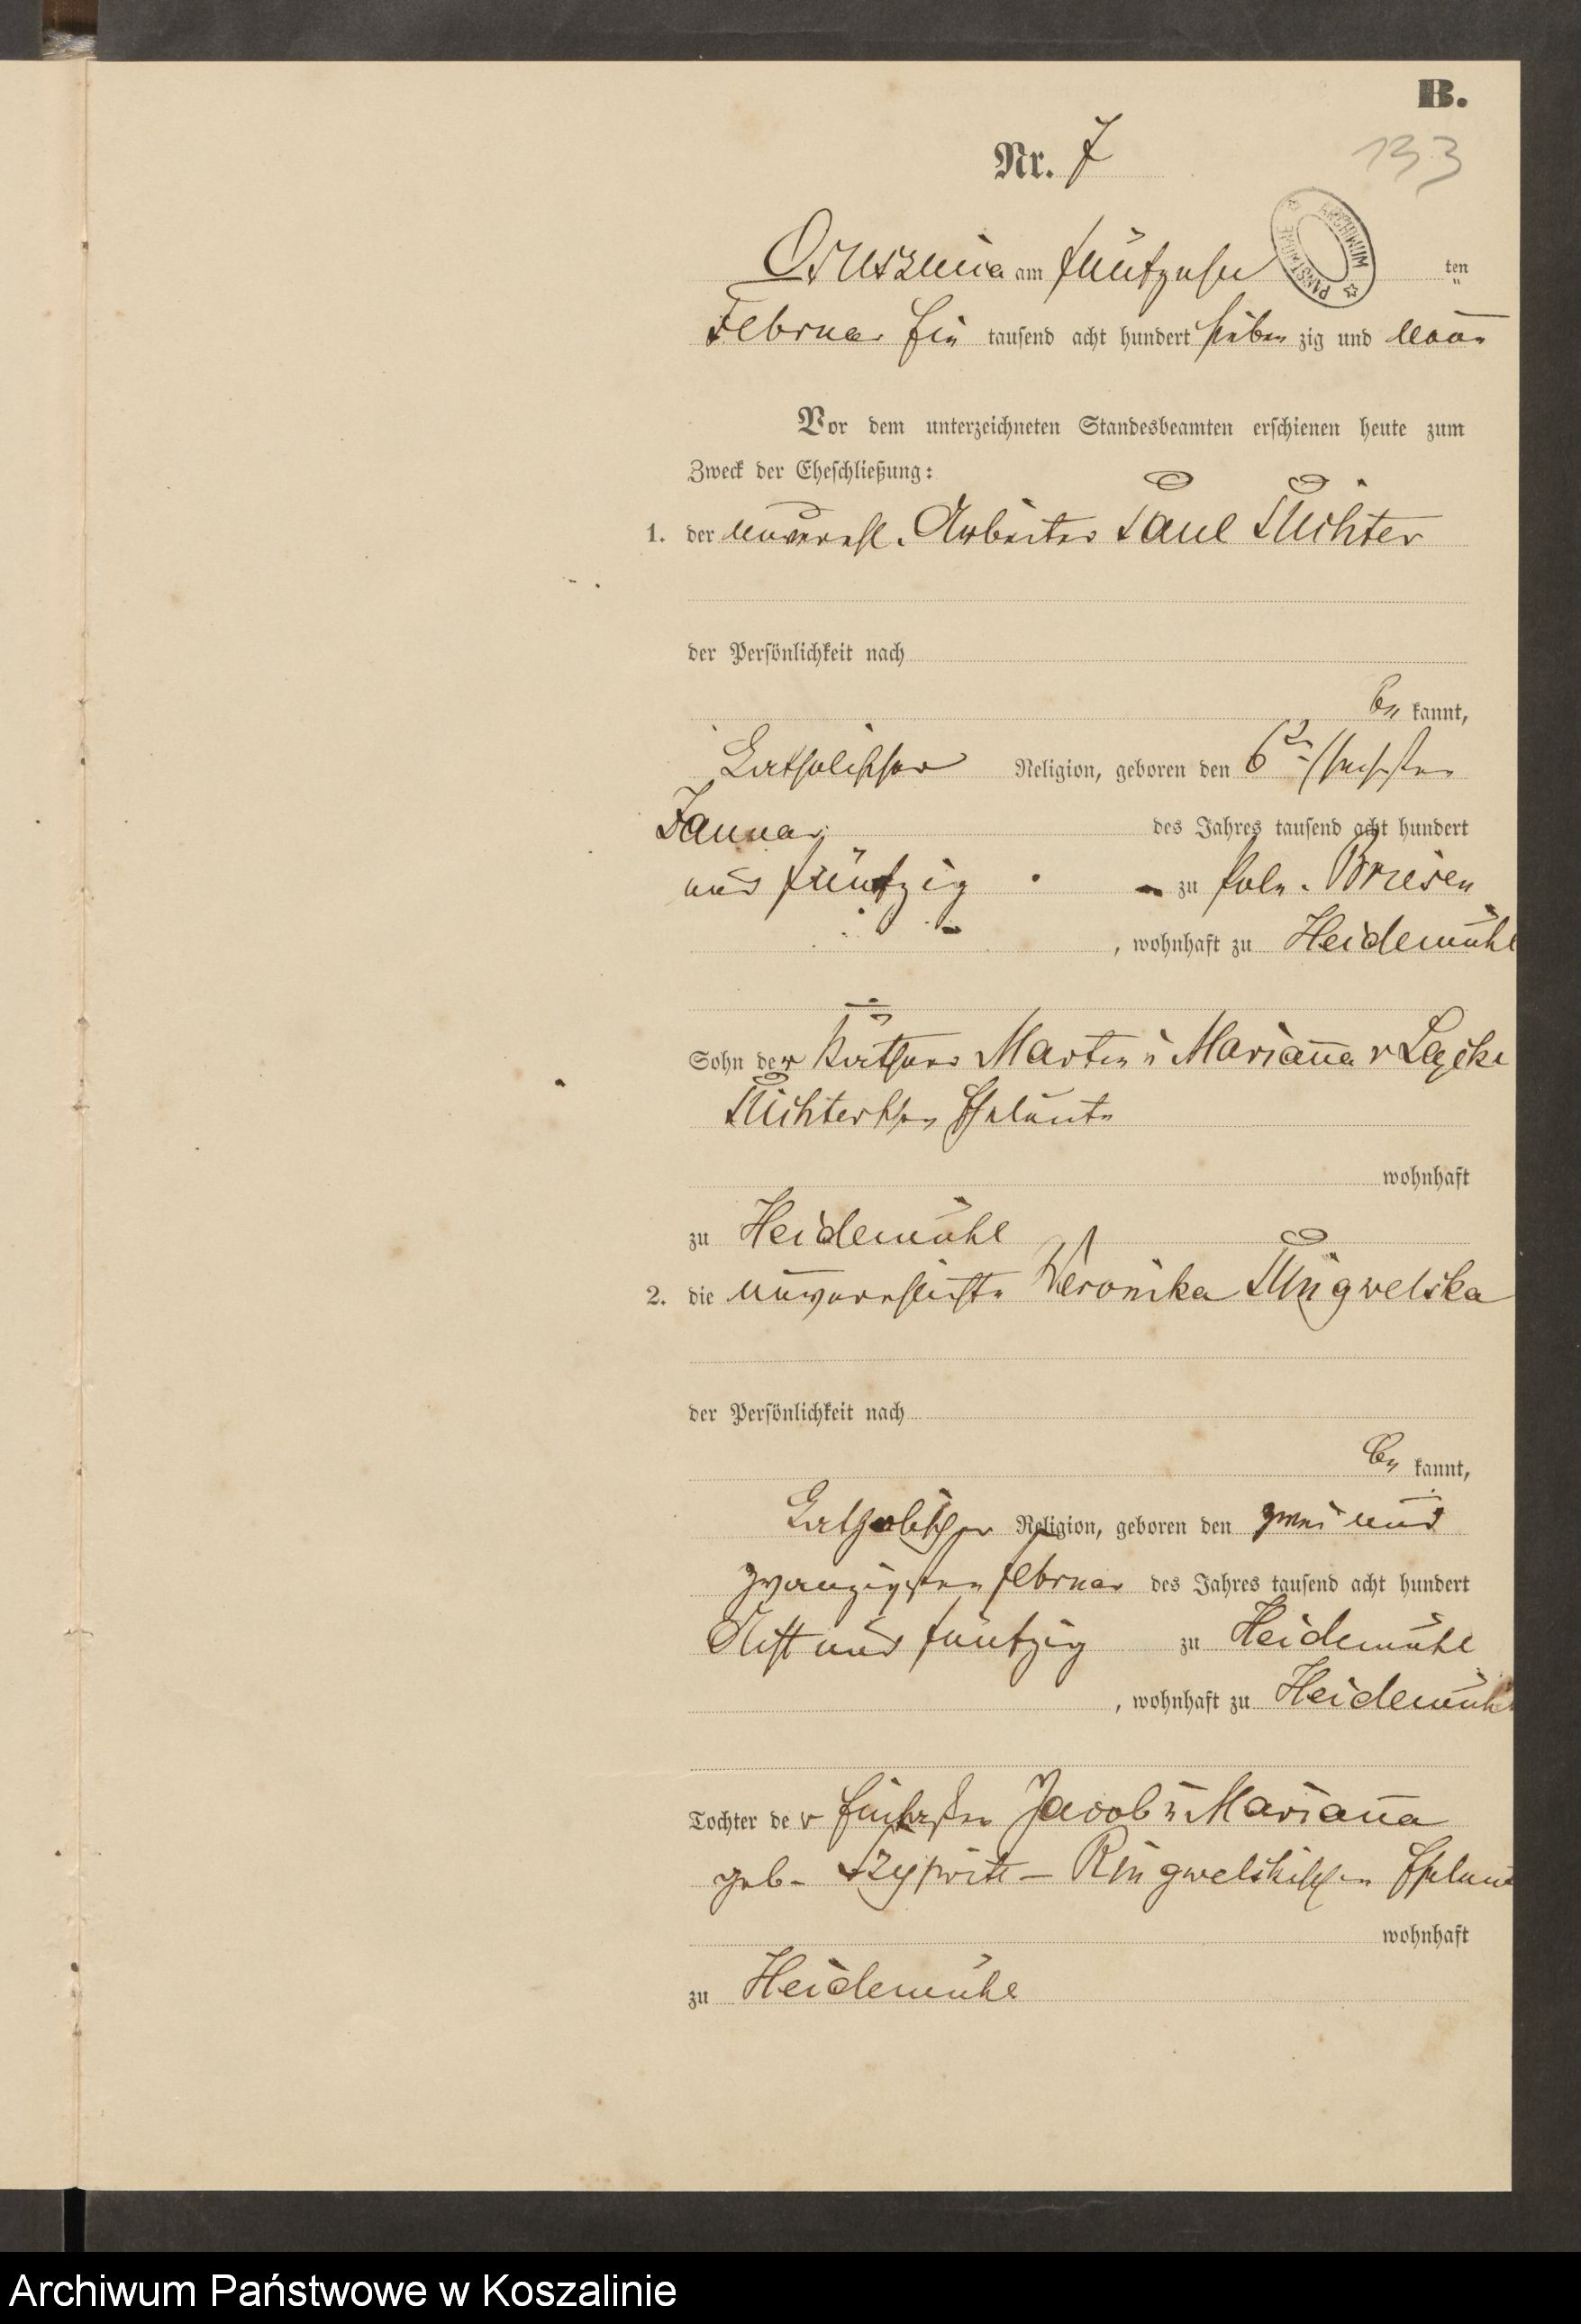 B.
Nr. 7
133
ARCHIWUM PAŃSTWOWE
Ossusznica am fünfzehn ten
Februar Ein tausend acht hundert sieben zig und neun
Vor dem unterzeichneten Standesbeamten erschienen heute zum
Zweck der Eheschließung:
1. der unverehl. Arbeiter Paul Richter
der Persönlichkeit nach
be kannt,
Katholischer Religion, geboren den 6ten sechsten
Januar des Jahres tausend acht hundert
und fünfzig zu Poln. Briesen
, wohnhaft zu Heidemühl
Sohn der Käthner Martin u Marianna
Richterschen Eheleute
wohnhaft
zu Heidemühl
2. die unverehlichte Veronika Ringwelska
der Persönlichkeit nach
be kannt,
Katholischer Religion, geboren den zwei und
zwanzigsten Februar des Jahres tausend acht hundert
und fünfzig zu Heidemühl
, wohnhaft zu Heidemühl
Tochter der Jacob u Marianna
geb. Ringwelskischen Eheleute
wohnhaft
zu Heidemühl
Archiwum Państwowe w Koszalinie